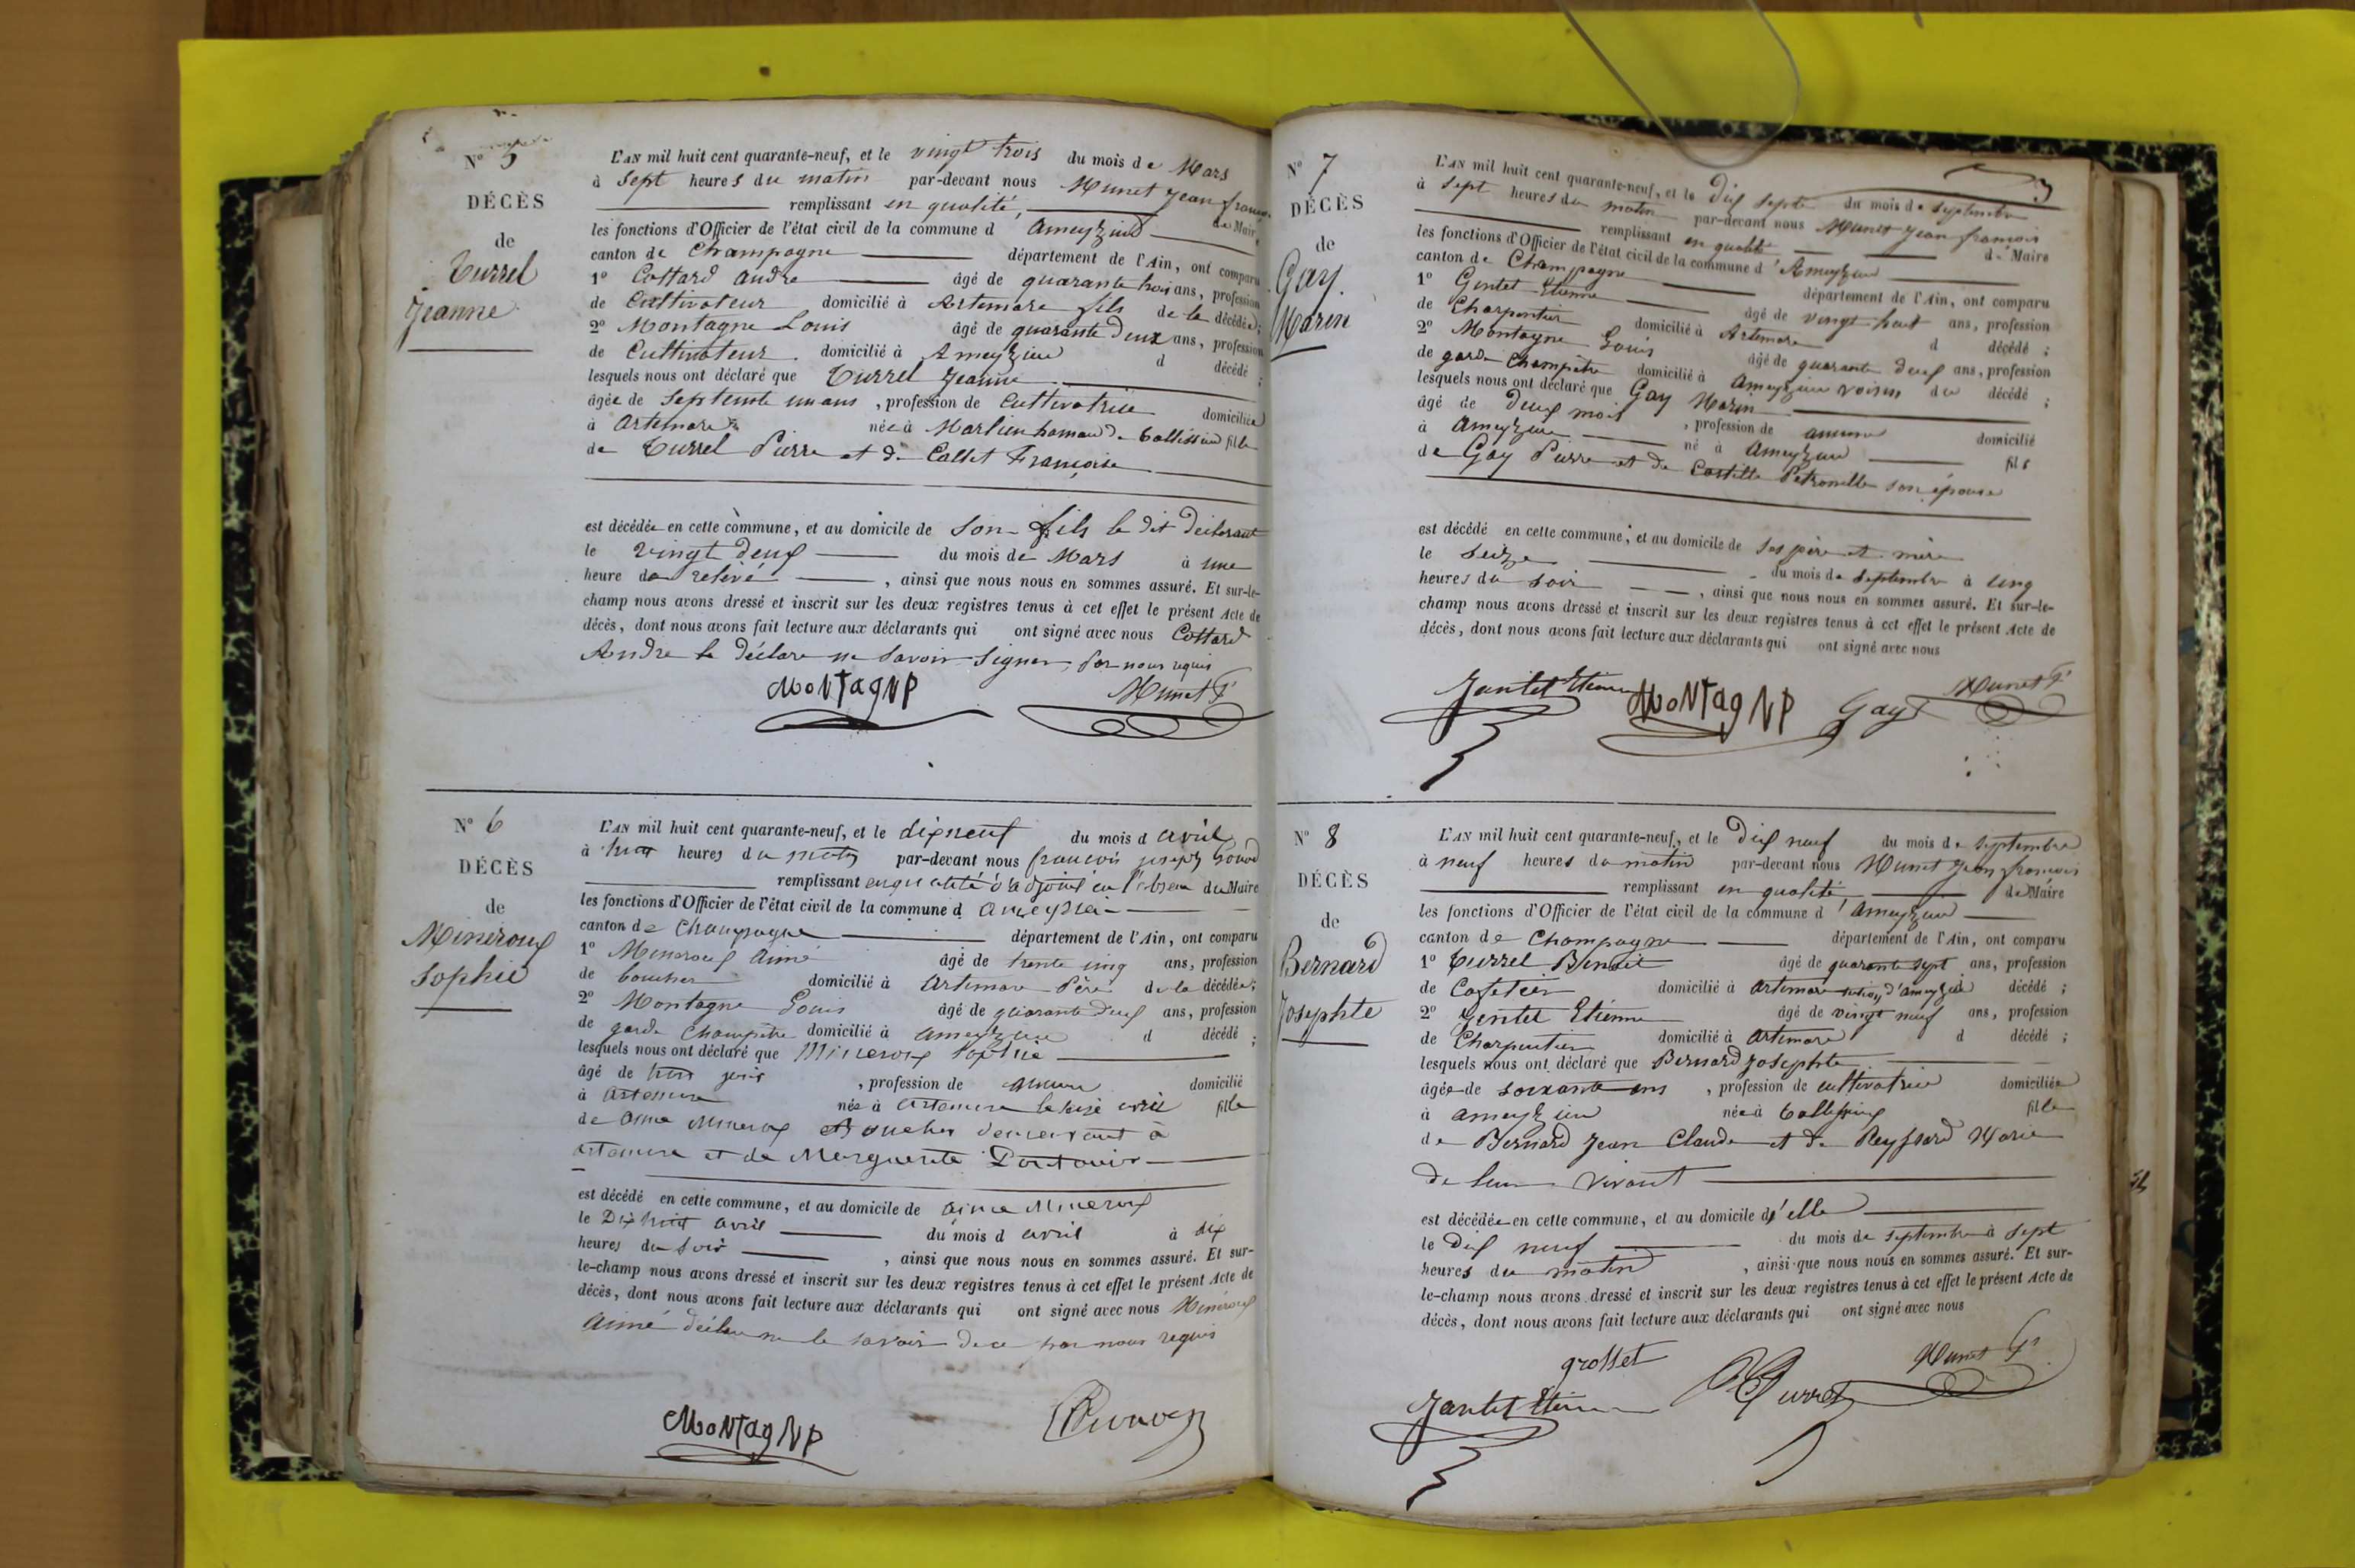 N° 5
DÉCÈS
de
Turrel
Jeanne
L'AN mil huit cent quarante-neuf, et le vingt trois du mois de Mars
à sept heures du matin par-devant nous Munet Jean françois
remplissant en qualité, de Maire
les fonctions d'Officier de l'état civil de la commune d Ameyzieu
canton de Champagne département de l'Ain, ont comparu
1° Cottard andre âgé de quarante trois ans, profession
de Cultivateur domicilié à Artemare fils de la décédée;
2° Montagne Louis âgé de quarante deux ans, profession
de Cultivateur domicilié à Ameyzieu d décédé ;
lesquels nous ont déclaré que Turrel Jeanne
âgée de septente un ans , profession de Cultivatrice domiciliée
à Artemare née à Marlieu hameau de Tallissieu fille
de Turrel Pierre et de Collet Françoise
est décédée en cette commune, et au domicile de son fils le dit déclarant
le vingt deux du mois de Mars à une
heure de relevé , ainsi que nous nous en sommes assuré. Et sur-le-
champ nous avons dressé et inscrit sur les deux registres tenus à cet effet le présent Acte de
décès, dont nous avons fait lecture aux déclarants qui ont signé avec nous Cottard
Andre le déclare ne savoir signer, par nous requis
MoNTagNe Munet F
N° 6
DÉCÈS
de
Mineroux
Sophie
L'AN mil huit cent quarante-neuf, et le dixneuf du mois d avril
à huit heures du matin par-devant nous françois joseph
remplissant en qualité d'adjoint en l'absence du Maire
les fonctions d'Officier de l'état civil de la commune d ameyzieu
canton de Champagne département de l'Ain, ont comparu
1° Mineroux Aimé âgé de trente cinq ans, profession
de boucher domicilié à Artemare Père de la décédée;
2° Montagne Louis âgé de quarante deux ans, profession
de garde Champêtre domicilié à ameyzieu d décédé ;
lesquels nous ont déclaré que Mineroux Sophie
âgé de trois jours , profession de aucune domicilié
à artemare née à artemare le seize avril fille
de aimé Mineroux Boucher demeurant à
artemare et de Marguerite
est décédé en cette commune, et au domicile de aimé Mineroux
le Dixhuit avril du mois d avril à dix
heures du soir , ainsi que nous nous en sommes assuré. Et sur-
le-champ nous avons dressé et inscrit sur les deux registres tenus à cet effet le présent Acte de
décès, dont nous avons fait lecture aux déclarants qui ont signé avec nous Mineroux
Aimé déclare ne le savoir de ce par nous requis
MoNTagNe
3
N° 7
DÉCÈS
de
Gay
Marin
L'AN mil huit cent quarante-neuf, et le Dix sept du mois de septembre
à sept heures du matin par-devant nous Munet Jean françois
remplissant en qualité de Maire
les fonctions d'Officier de l'état civil de la commune d'Ameyzieu
canton de Champagne département de l'Ain, ont comparu
1° Gentet Etienne âgé de vingt huit ans, profession
de Charpentier domicilié à Artemare d décédé ;
2° Montagne Louis âgé de quarante deux ans, profession
de garde Champêtre domicilié à Ameyzieu voisin du décédé ;
lesquels nous ont déclaré que Gay Marin
âgé de deux mois , profession de aucune domicilié
à Ameyzieu né à Ameyzieu fils
de Gay Pierre et de Castille Petronille son épouse
est décédé en cette commune, et au domicile de ses père et mère
le seize du mois de septembre à cinq
heures du soir , ainsi que nous nous en sommes assuré. Et sur-le-
champ nous avons dressé et inscrit sur les deux registres tenus à cet effet le présent Acte de
décès, dont nous avons fait lecture aux déclarants qui ont signé avec nous
Jantet Etienne MoNTagNe Gay Munet F
N° 8
DÉCÈS
de
Bernard
Josephte
L'AN mil huit cent quarante-neuf, et le Dix neuf du mois de septembre
à neuf heures du matin par-devant nous Munet Jean françois
remplissant en qualité, de Maire
les fonctions d'Officier de l'état civil de la commune d'Ameyzieu
canton de Champagne département de l'Ain, ont comparu
1° Turrel Benoit âgé de quarante sept ans, profession
de Cafetier domicilié à Artemare d'ameyzieu décédé ;
2° Gentet Etienne âgé de vingt neuf ans, profession
de Charpentier domicilié à Artemare d décédé ;
lesquels nous ont déclaré que Bernard Josephte
âgée de soixante ans , profession de cultivatrice domiciliée
à ameyzieu née à Tallissieu fille
de Bernard Jean Claude et de Reyssard Marie
de leur vivant
est décédée en cette commune, et au domicile d'elle
le Dix neuf du mois de septembre à sept
heures du matin , ainsi que nous nous en sommes assuré. Et sur-
le-champ nous avons dressé et inscrit sur les deux registres tenus à cet effet le présent Acte de
décès, dont nous avons fait lecture aux déclarants qui ont signé avec nous
grosset Munet F
Jantet Etienne Turrel